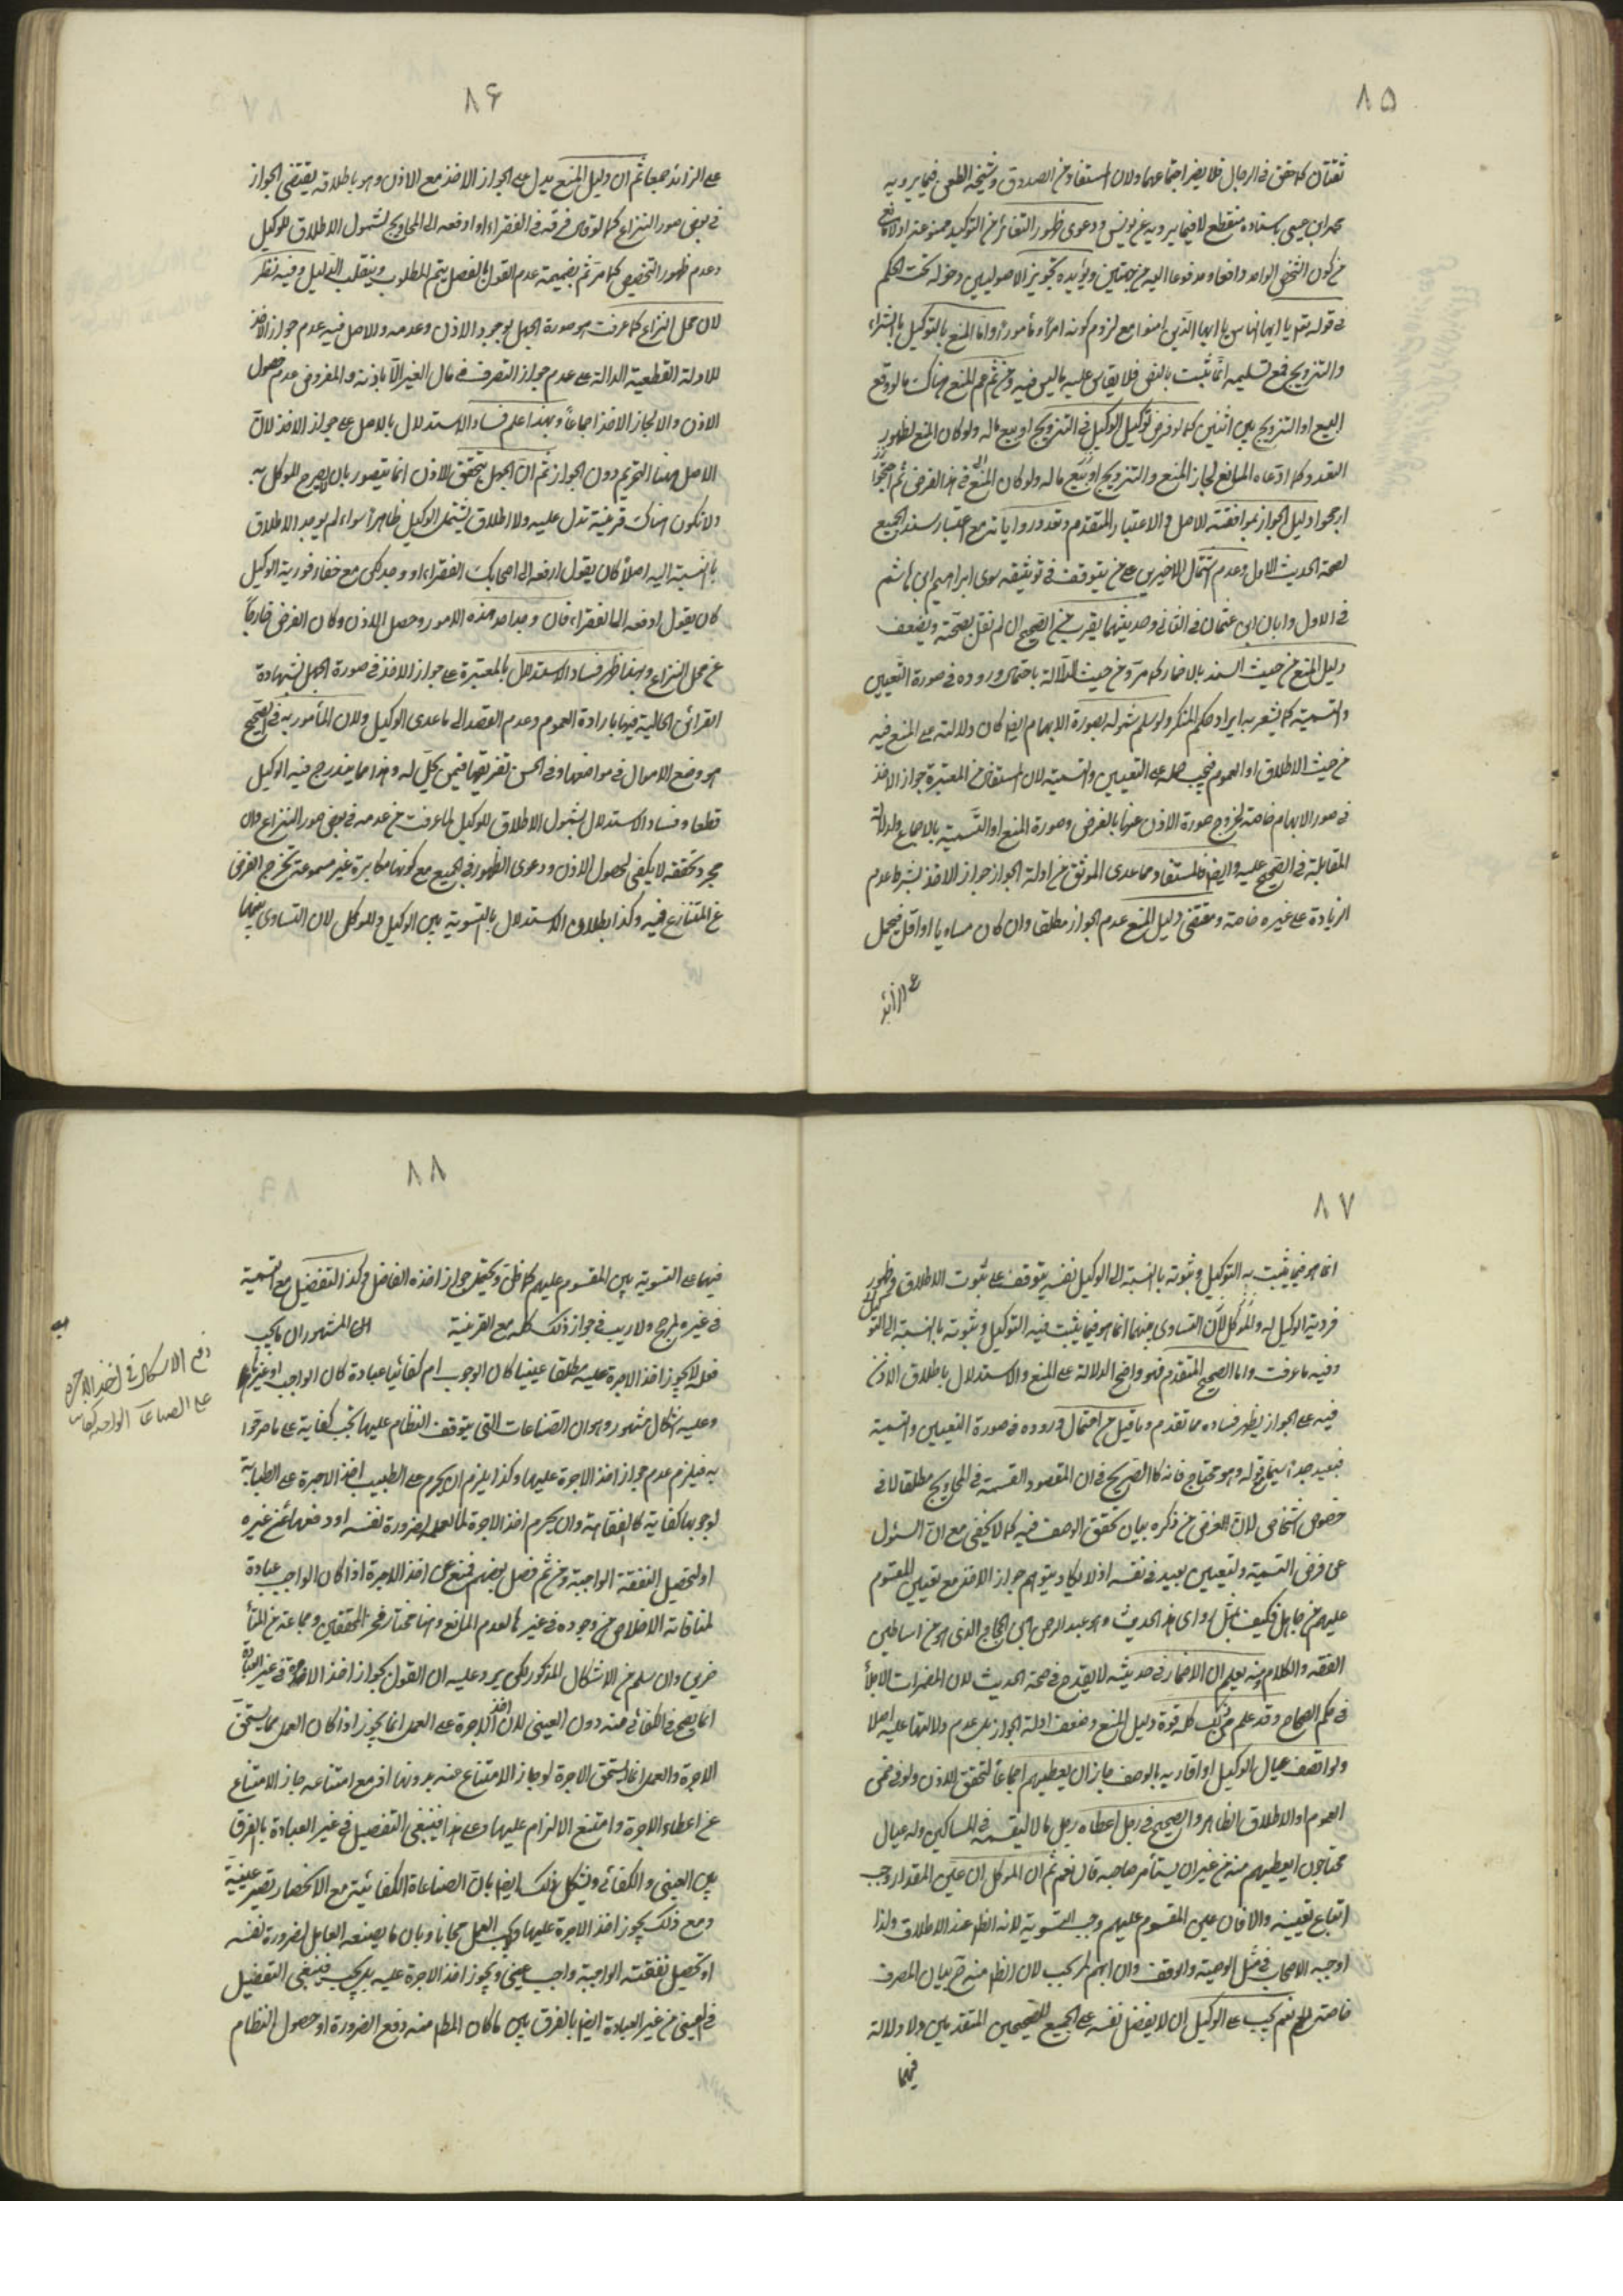 ٨٥
ثقتان كما حقق فى الرجال فلا يضر اجتماعهما ولان المستفاد من الصدوق وشيخه الطعن فيما يرويه
محمد ابن عيسى باسناده منقطع لا فيما يرويه عن يونس ودعوى ظهور التغائر من التوكيد ممنوعة اذ لا مانع
من كون الشخص الواحد دافعا ومدفوعا اليه من جهتين ويؤيده تجويز الاصوليين دخوله تحت الحكم
فى قوله تع يا ايها الناس يا ايها الذين امنوا مع لزوم كونه امرا ومأمورا واما المنع بالتوكيل بالشراء
والتزويج فمع تسليمه انما ثبت بالنص فلا يقاس عليه ما ليس فيه ومن ثم عم المنع هناك ما لو وقع
البيع او التزويج بين اثنين كما لو فرض توكيل الوكيل فى التزويج او بيع ماله ولو كان المنع لظهور
التعدد كما ادعاه المانع لجاز المنع والتزويج او بيع ماله ولو كان المنع فى هذا الفرض ثم احتجوا
ارجحوا دليل الجواز بموافقته الاصل والاعتبار المتقدم وتعدد رواياته مع اعتبار سند الجميع
لصحة الحديث الاول وعدم اشتمال الاخيرين على من يتوقف فى توثيقه سوى ابراهيم ابن هاشم
فى الاول وابان ابن عثمان فى الثانى وحديثهما يقرب من الصحيح ان لم نقل بصحته ويضعف
دليل المنع من حيث السند بالاضمار كما مر ومن حيث الدلالة باحتمال وروده فى صورة التعيين
والتسمية كما يشعر به ايراد حكم المنكر ولو سلم شموله لصورة الابهام ايضا كان دلالته على المنع فيه
من حيث الاطلاق او العموم فيجب حمله على التعيين والتسمية لان المستفاد من المعتبرة جواز الاخذ
فى صور الابهام خاصة لخروج صورة الاذن عنها بالفرض وصورة المنع او التسمية بالاجماع ولدلالة
المقابلة فى الصحيح عليه وايضا فالمستفاد مما عدى الموثق من ادلة الجواز جواز الاخذ بشرط عدم
الزيادة على غيره خاصة ومقتضى دليل المنع عدم الجواز مطلقا وان كان مساويا او اقل فيحمل
على الزائد
٨۶
على الزائد جمعا ثم ان دليل المنع يدل على الجواز الاخذ مع الاذن وهو باطلاقه يقتضى الجواز
فى بعض صور النزاع كما لو قال فرقه فى الفقراء او ادفعه الى المحاويج لشمول الاطلاق للوكيل
وعدم ظهور التخصيص كما مر ثم بضميمة عدم القول بالفصل يتم المطلوب وينقلب الدليل وفيه نظر
لان محل النزاع كما عرفت هو صورة الجهل بوجود الاذن وعدمه والاصل فيه عدم جواز الاخذ
للادلة القطعية الدالة على عدم جواز التصرف فى مال الغير الا باذنه والمفروض عدم حصول
الاذن والا لجاز الاخذ اجماعا وبهذا علم فساد الاستدلال بالاصل على جواز الاخذ لان
الاصل هنا التحريم دون الجواز ثم ان الجهل بتحقق الاذن انما يتصور بان لا يصرح الموكل به
ولا تكون هناك قرينة تدل عليه ولا اطلاق يشتمل الوكيل ظاهرا سواء لم يوجد الاطلاق
بالنسبة اليه اصلا كان يقول ادفعه الى اصحابك الفقراء او وجد لكن مع خفاء فردية الوكيل
كان يقول ادفعه الى الفقراء فان وجد احد هذه الامور وحصل الاذن وكان الفرض خارجا
عن محل النزاع وبهذا ظهر فساد الاستدلال بالمعتبرة على جواز الاخذ فى صورة الجهل لشهادة
القرائن الحالية فيها بارادة العموم وعدم القصد الى ما عدى الوكيل ولان المأمور به فى الصحيح
هو وضع الاموال فى مواضعها وفى الحسن تفريقها فيمن يحل له وهذا مما يندرج فيه الوكيل
قطعا وفساد الاستدلال بشمول الاطلاق للوكيل لما عرفت من عدمه فى بعض صور النزاع وان
مجرد تحققه لا يكفى لحصول الاذن ودعوى الظهور فى الجميع مع كونها مكابرة غير مسموعة تخرج الفرض
عن المتنازع فيه وكذا بطلان الاستدلال بالتسوية بين الوكيل والموكل لان التساوى بينهما
٨٧
انما هو فيما يثبت به التوكيل وثبوته بالنسبة الى الوكيل نفسه يتوقف على ثبوت الاطلاق وظهور
فردية الوكيل له والموكل لان التساوى بينهما انما هو فيما يثبت فيه التوكيل وثبوته بالنسبة الى التوكيل
وفيه ما عرفت واما الصحيح المتقدم فهو واضح الدلالة على المنع والاستدلال باطلاق الاذن
فيه على الجواز يظهر فساده مما تقدم وما قيل من احتمال وروده فى صورة التعيين والتسمية
فبعيد جدا سيما مع قوله وهو محتاج فانه كالصريح فى ان المقصود القسمة فى المحاويج مطلقا لا فى
خصوص اشخاص لان الغرض من ذكره بيان تحقق الوصف فيه كما لا يخفى مع ان السئول
عن فرض التسمية والتعيين بعيد فى نفسه اذ لا يكاد يتوهم جواز الاخذ مع تعيين المقسوم
عليهم من جاهل فكيف بمثل راوى هذا الحديث وهو عبد الرحمن ابن الحجاج الذى هو من اساطين
الفقه والكلام ومنه يعلم ان الاضمار فى حديثه لا يقدح فى صحة الحديث لان المضمرات الاجلاء
فى حكم الصحاح وقد علم من ذلك كله قوة دليل المنع وضعف ادلة الجواز بل عدم دلالتها عليه اصلا
ولو اتصف عيال الوكيل او اقاربه بالوصف جاز ان يعطيهم اجماعا لتحقق الاذن ولو فى ضمن
العموم او الاطلاق الظاهر والصحيح فى رجل اعطاه رجل مالا ليقسمه فى المساكين وله عيال
محتاجون ايعطيهم منه من غير ان يستأمر صاحبه قال نعم ثم ان الموكل ان عين المقدار وجب
اتباع تعيينه والا فان عين المقسوم عليهم وجب التسوية لانه الظ عند الاطلاق ولذا
اوجبه الاصحاب فى مثل الوصية والوقف وان ابهم لم يجب لان الظ منه ح بيان المصرف
خاصة نعم يجب على الوكيل ان لا يفضل نفسه على الجميع للصحيحين المتقدمين ولا دلالة
فيهما
٨٨
فيهما على التسوية بين المقسوم عليهم كما ظن ويحتمل جواز اخذه الفاضل وكذا التفضيل مع التسمية
فى غيره لمرجح ولا ريب فى جواز ذلك كله مع القرينة المشهور ان ما يجب
فعله لا يجوز اخذ الاجرة عليه مطلقا عينيا كان الوجوب ام كفائيا عبادة كان الواجب او غيرها
وعليه اشكال مشهور وهو ان الصناعات التى يتوقف النظام عليها تجب كفاية على ما صرحوا
به فيلزم عدم جواز اخذ الاجرة عليها وكذا يلزم ان يحرم على الطبيب اخذ الاجرة على الطبابة
لوجوبها كفاية كالفقاهة وان يحرم اخذ الاجرة لما يعمله لضرورة نفسه او دفعها عن غيره
او لتحصيل النفقة الواجبة ومن ثم فصل بعضهم فمنع من اخذ الاجرة اذا كان الواجب عبادة
لمنافاته الاخلاص من وجوده فى غيرها لعدم المانع وهذا مختار فخر المحققين وجماعة من المتأ
خرين وان سلم من الاشكال المذكور لكن يرد عليه ان القول بجواز اخذ الاجرة فى غير العبادة
انما يصح فى الكفائى منه دون العينى لان اخذ الاجرة على العمل انما يجوز اذا كان العمل مما يستحق
الاجرة والعمل انما يستحق الاجرة لو جاز الامتناع عنه بدونها اذ مع امتناعه جاز الامتناع
عن اعطاء الاجرة وامتنع الالزام عليها وعلى هذا فينبغى التفصيل فى غير العبادة بالفرق
بين العينى والكفائى ويشكل ذلك ايضا بان الصناعات الكفائية مع الانحصار تصير عينية
ومع ذلك يجوز اخذ الاجرة عليها ولا يجب العمل مجانا وبان ما يصنعه العامل لضرورة نفسه
او تحصيل نفقته الواجبة واجب عينى ويجوز اخذ الاجرة عليه بل يجب فينبغى التفصيل
فى العينى من غير العبادة ايضا بالفرق بين ما كان المط منه دفع الضرورة او حصول النظام
دفع الاشكال فى اخذ الاجرة
على الصناعات الواجبة كفاية